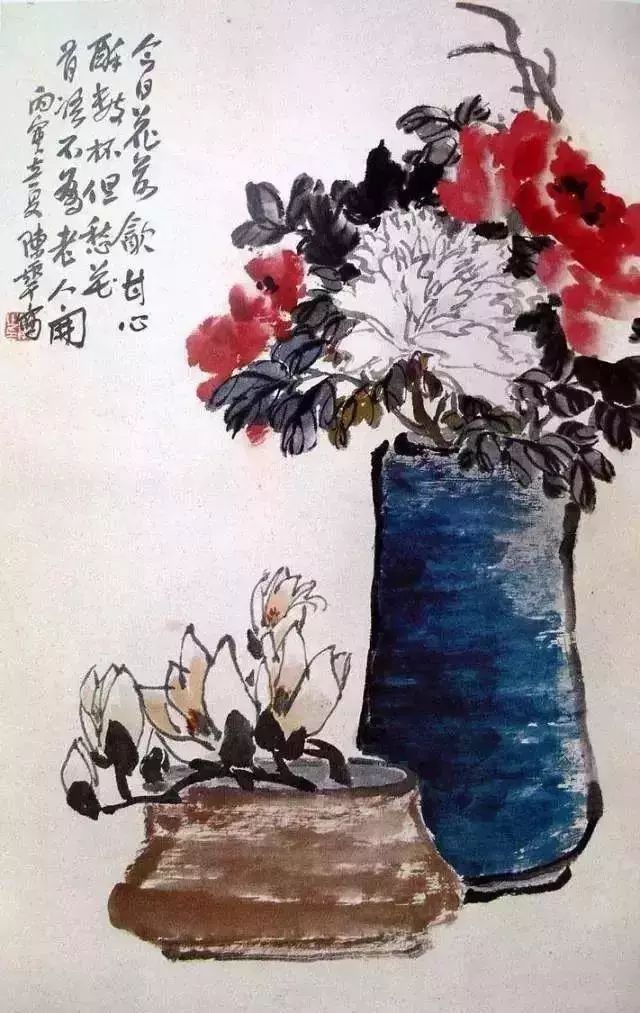 今日花前㱃甘心
醉數杯但愁花
有語不為老人開
丙寅立夏陳寫